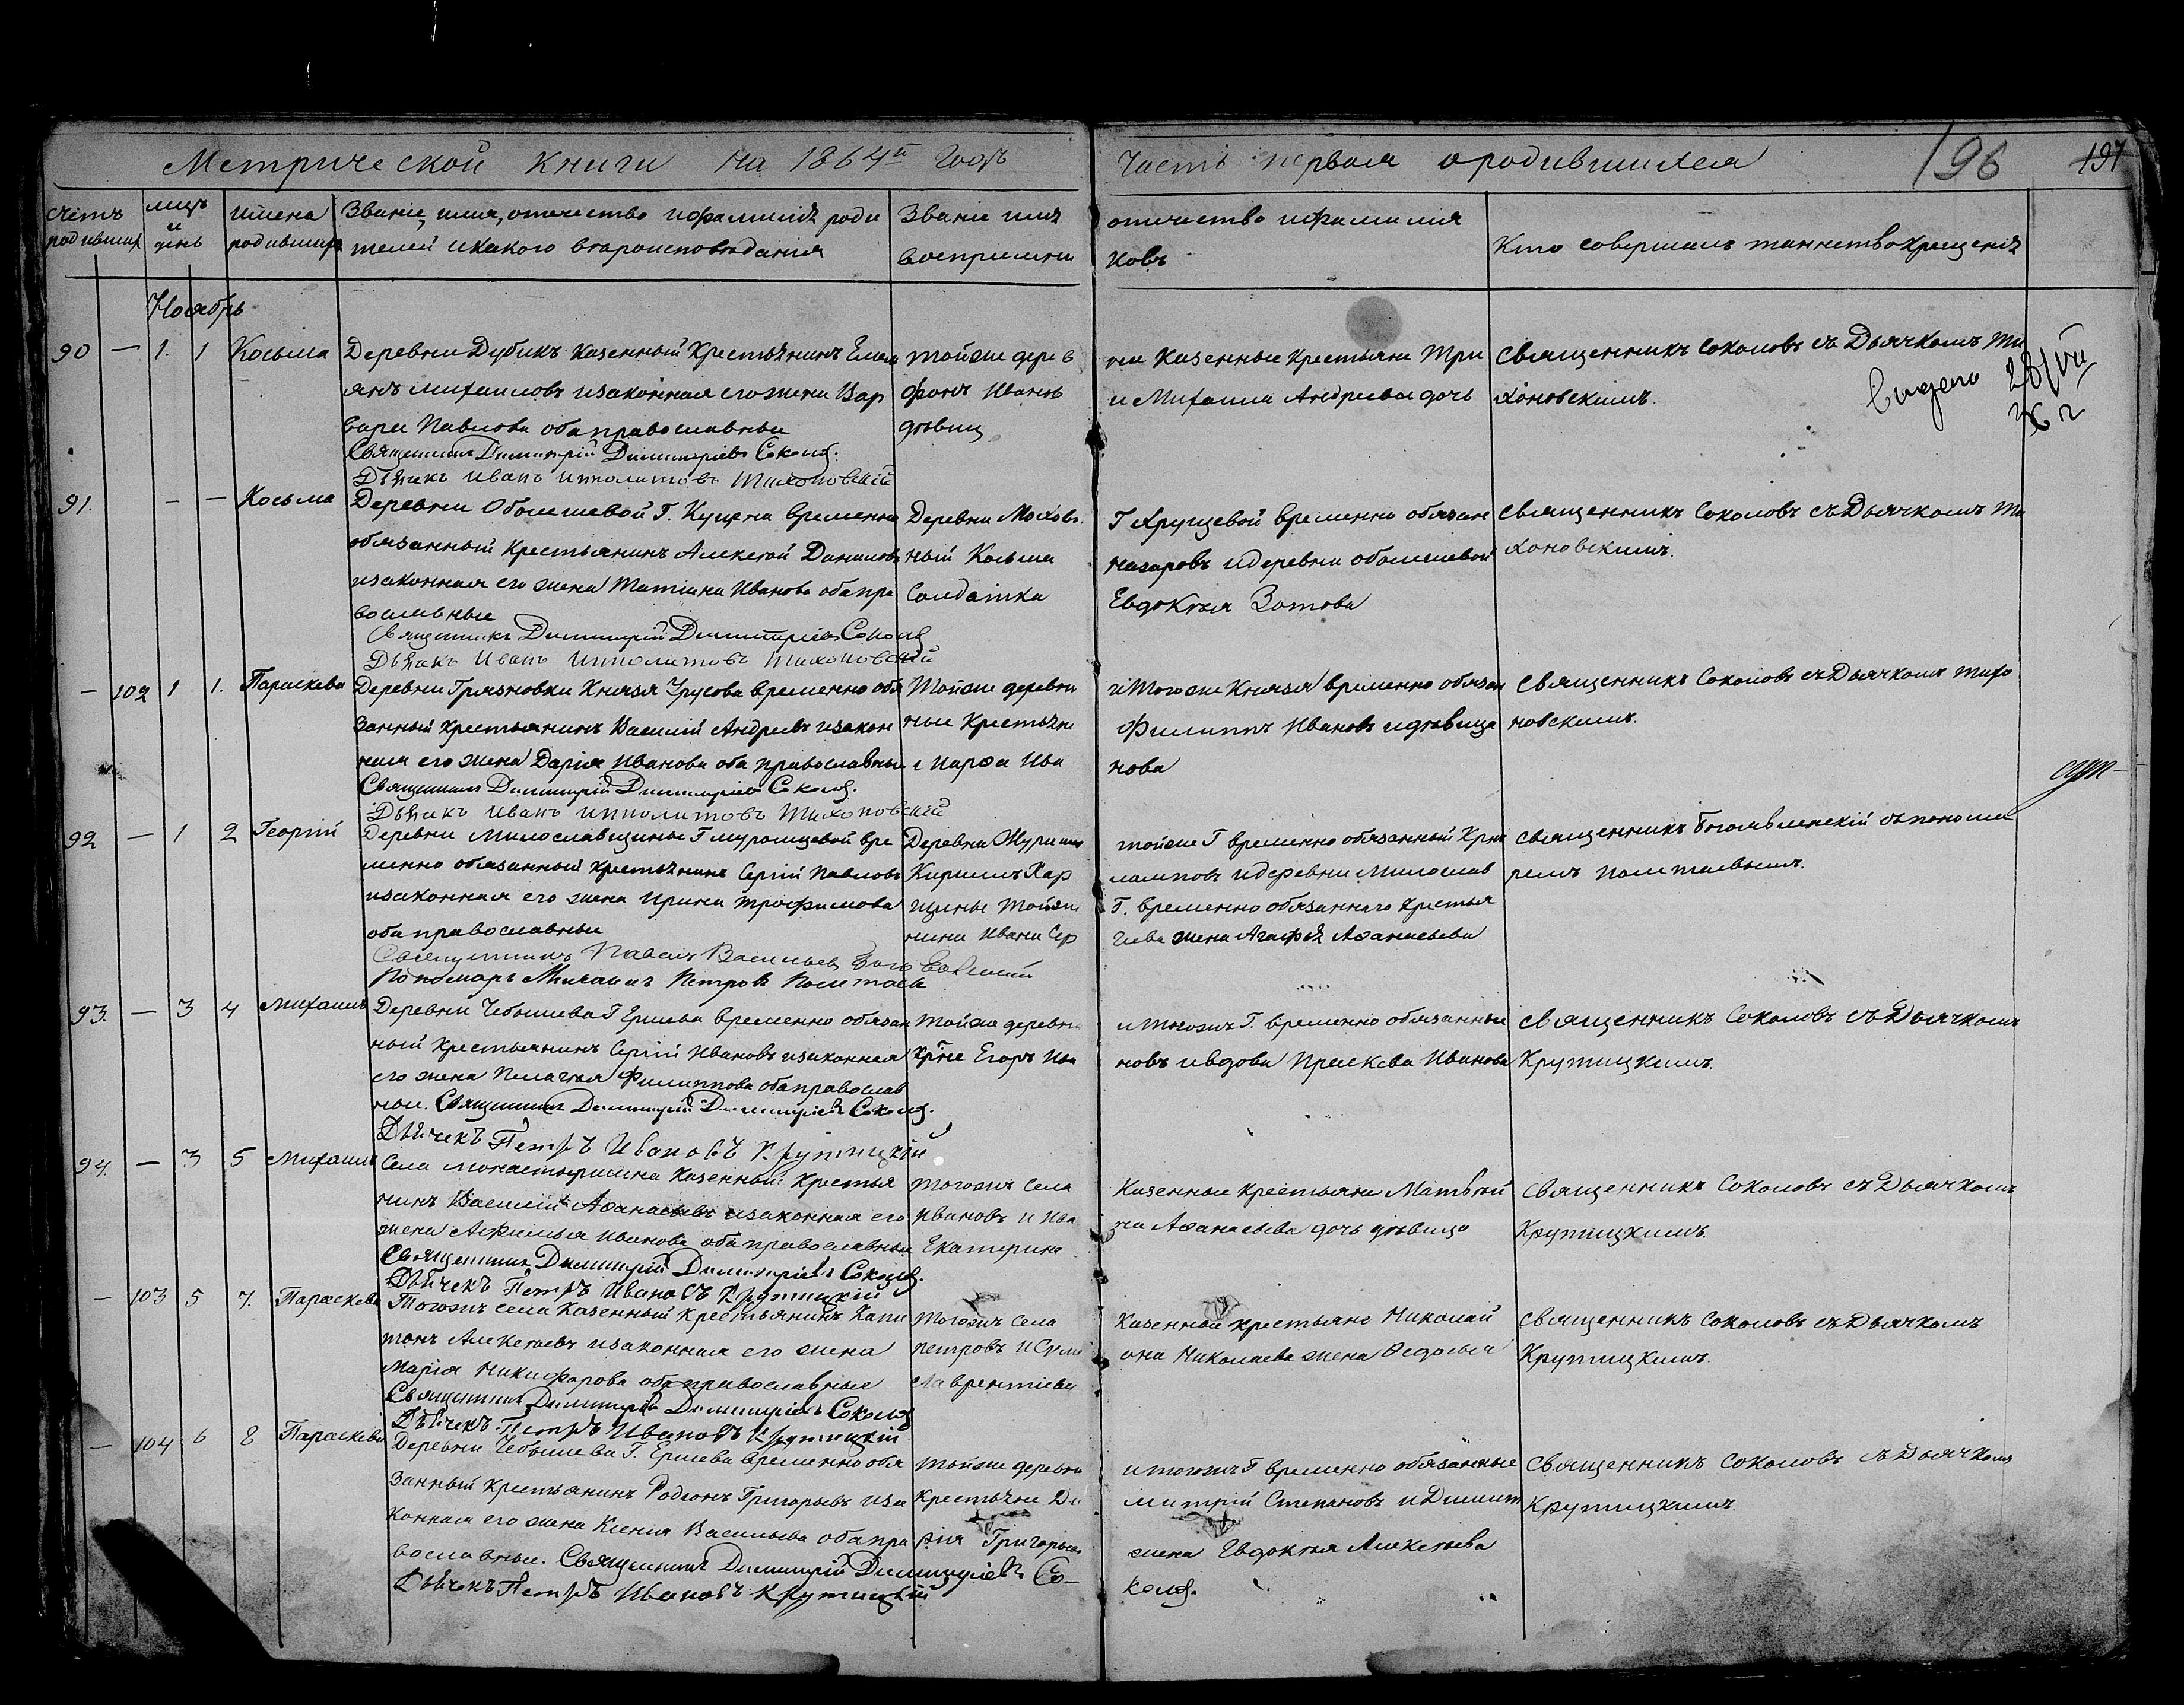 Метрической книги на 1864й годъ часть первая о родившихся 196 197
счетъ родившихъ
мцъ и день
имена родившихъ
Званіе, имя, отчество и фамилія роди
телей и какого вѣроисповѣданія
Званіе имя отчество и фамилія
воспріемни ковъ
Кто совершалъ таинство крещенія
Ноябрь
90 — 1. 1 Косьма
Деревни Дубикъ казенный крестьянинъ Емел
янъ Михаиловъ и законная его жена Вар
вара Павлова оба православные
Священникъ Димитрій Димитріевъ Соколов.
Дьячекъ Иванъ Ипполитовъ Тихоновскій
тойже дерев ни казенные крестьяне Три
фонъ Ивановъ и Михаила Андреева дочь
дѣвиц
Священникъ Соколовъ съ Дьячкомъ Ти
хоновскимъ.
видено 28/VII
36 г
91. — — Косьма
Деревни Оболешевой Г. Кущена временно
обязанный крестьянинъ Алексѣй Даниловъ
и законная его жена Татіана Иванова оба пра
вославные
Священникъ Димитрій Димитріевъ Соколов
Дьячекъ Иванъ Ипполитовъ Тихоновскій
Деревни Мохов. Г Хрущевой временно обязан
ный Косьма назаровъ и деревни оболешевой
Солдатка Евдокѣя Зотова
Священникъ Соколовъ съ Дьячкомъ Ти
хоновскимъ.
— 102 1 1. Параскева
Деревни Грязновки Князя Урусова временно обя
занный крестьянинъ Василій Андреевъ и закон
ная его жена Дарія Иванова оба православные
Священникъ Димитрій Димитріевъ Соколов.
Дьячекъ Иванъ Ипполитовъ Тихоновскій
Тойже деревни и Тогоже Князя временно обязан
ные крестьяне Филиппъ Ивановъ и дѣвица
Марѳа Ива нова
Священникъ Соколовъ съ Дьячкомъ Тихо
новскимъ.
92 — 1 2 Георгій
Деревни Милославщины Г Муромцевой вре
менно обязанный крестьянинъ Сергій Павловъ
и законная его жена Ирина Трофимова
оба православные
Священникъ Павелъ Васильевъ Богоявленскій
Пономарь Михаилъ Петровъ Полетаевъ
Деревни тойже Г временно обязанный Крн
Кирилъ Хар ламповъ и деревни Милослав
щины Тойже Г. временно обязаннаго крестья
нина Ивана Сер гѣева жена Агафья Аѳанасьева
священникъ Богоявленскій съ понома
ремъ Полетаевымъ.
93. — 3 4 Михаилъ
Деревни Чебышева Г Ершева временно обязан
ный крестьянинъ Сергій Ивановъ и законная
его жена Пелагѣя Филиппова оба православ
ные. Священникъ Димитрій Димитріевъ Соколов.
Дьячекъ Петръ Ивановъ Крутицкій
Тойже деревни и Тогожъ Г. временно обязанные
крне Егоръ Ива новъ и вдова Праскева Иванова
Священникъ Соколовъ съ Дьячкомъ
Крутицкимъ.
94. — 3 5 Михаилъ
Села Монастырщина казенный крестья
нинъ Василій Аѳанасьевъ и законная его
жена Афимья Иванова оба православные
Священникъ Димитрій Димитріевъ Соколов.
Дьячекъ Петръ Ивановъ Крутицкій
Тогожъ села Казенные крестьяне Матвѣй
Ивановъ и Ива на Аѳанасьева дочь дѣвица
Екатерина
Священникъ Соколовъ съ Дьячкомъ
Крутицкимъ.
— 103 5 7. Параскева
Тогожъ села казенный крестьянинъ Капи
тонъ Алексѣевъ и законная его жена
Марія Никифорова оба православные
Священникъ Димитрій Димитріевъ Соколов
Дьячекъ Петръ Ивановъ Крутицкій
Тогожъ села Казенные крестьяне Николай
петровъ и Сем она Николаева жена Ѳедосья
Лаврентіева
Священникъ Соколовъ съ Дьячкомъ
Крутицкимъ.
— 104 6 8 Параскева
Деревни Чебышева Г. Ершева временно обя
занный крестьянинъ Родіонъ Григорьевъ и за
конная его жена Ксенія Васильева оба пра
вославные. Священникъ Димитрій Димитріевъ Со-
колов.
Дьячекъ Петръ Ивановъ Крутицкій
Тойже деревни и тогожъ Г временно обязанные
крестьяне Ди митрій Степановъ и Димит
рія Григорьев жена Евдокѣя Алексѣева
Священникъ Соколовъ съ Дьячком
Крутицкимъ